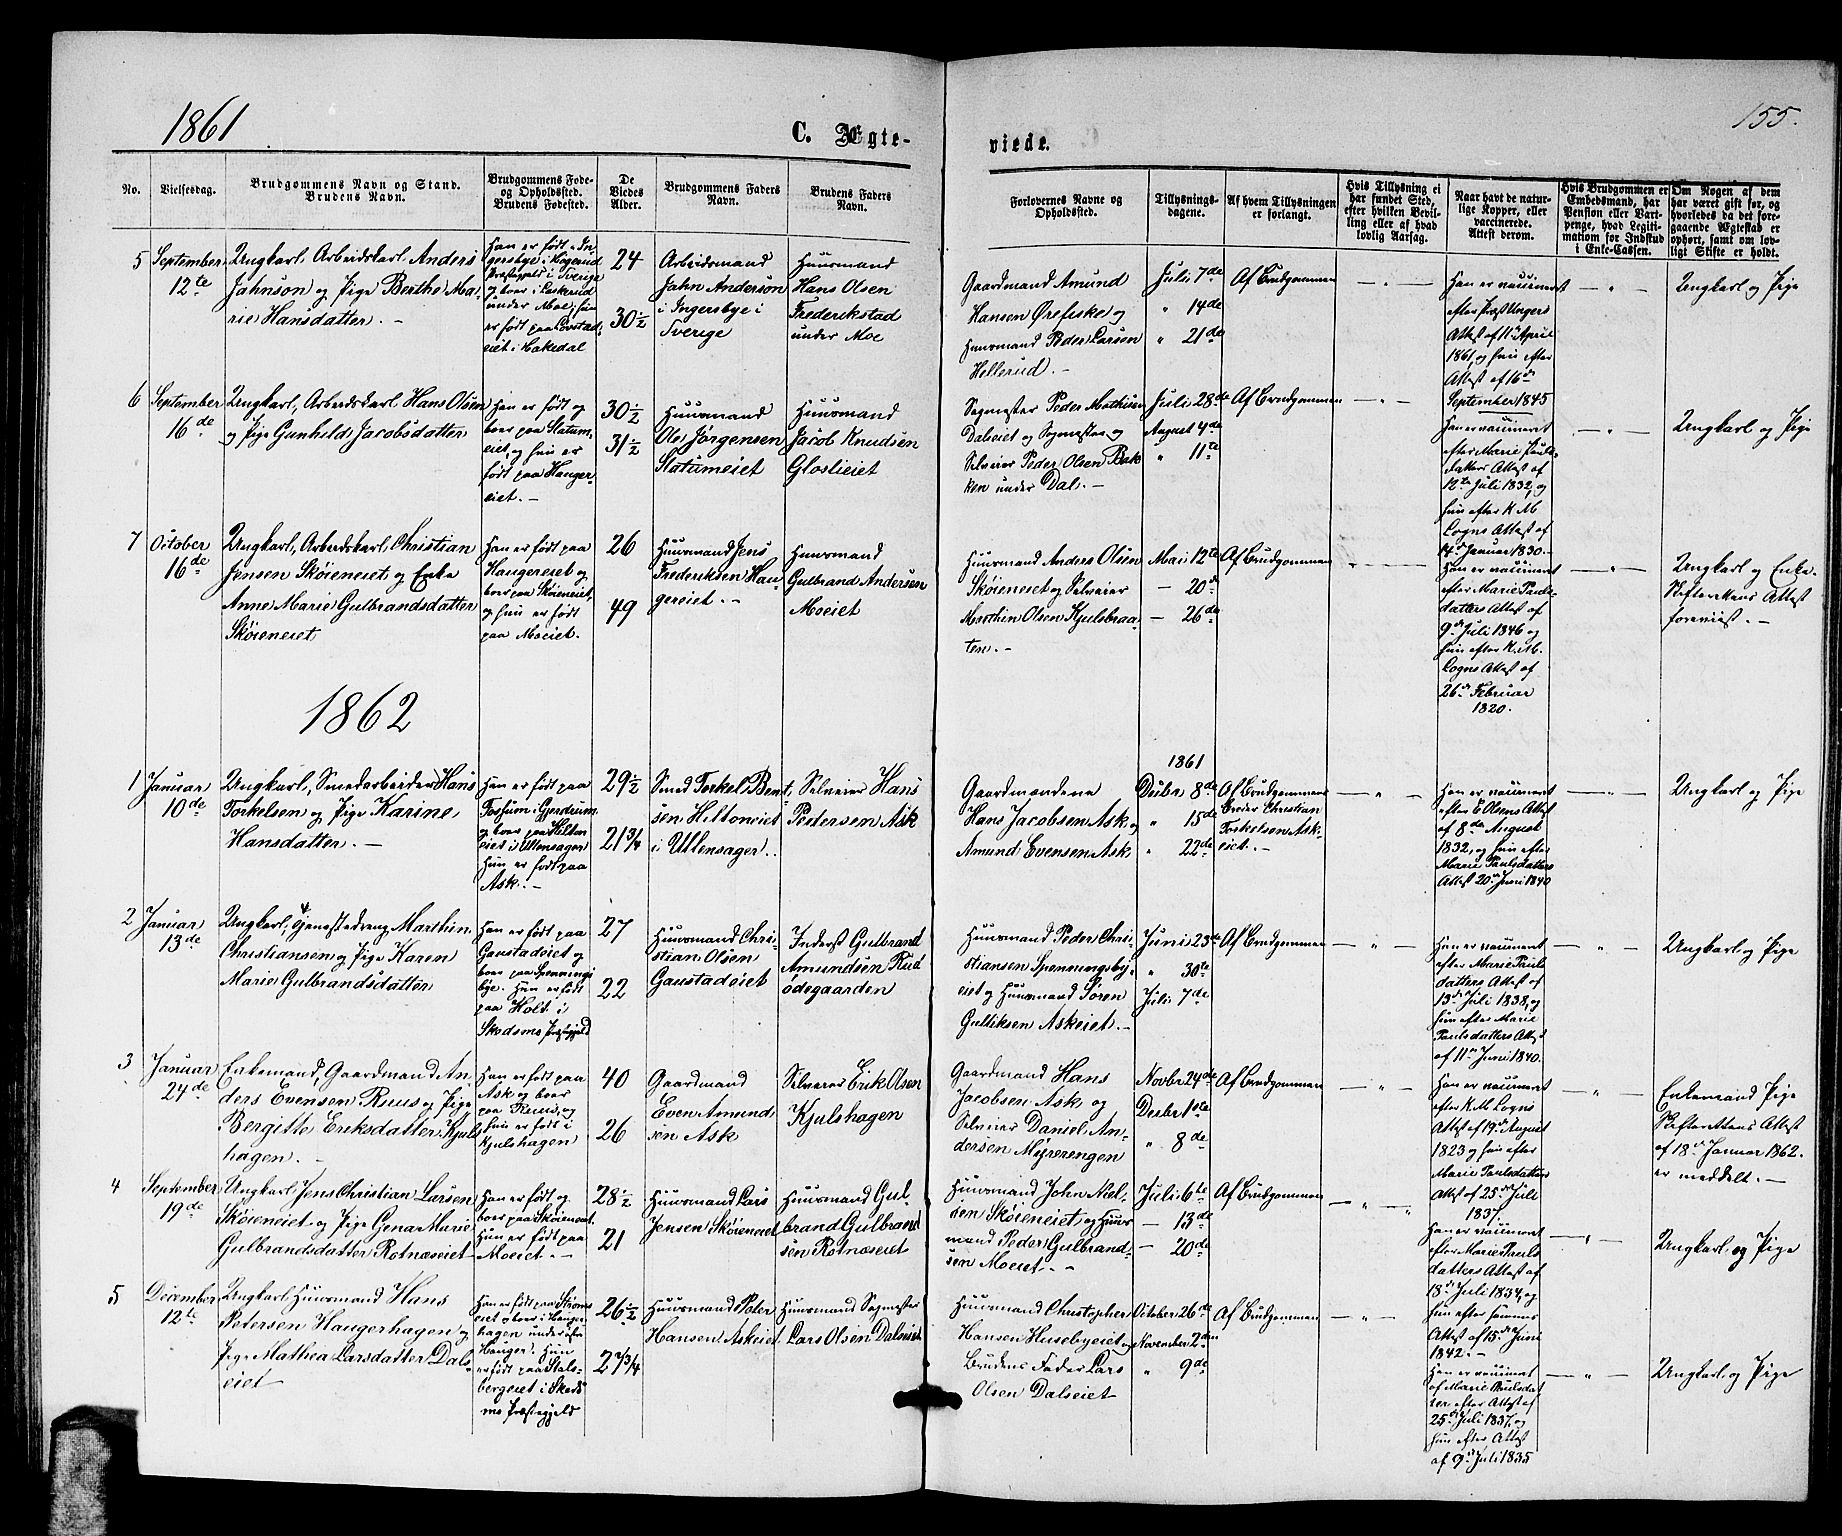 1861
C. Ægte-
viede.
155.
No.
Vielsesdag.
Brudgommens Navn og Stand.
Brudens Navn.
Brudgommens Føde-
og Opholdssted.
Brudens Fødested.
De
Viedes
Alder.
Brudgommens Faders
Navn.
Brudens Faders
Navn.
Forlovernes Navne og
Opholdssted.
Tillysnings-
dagene.
Af hvem Tillysningen
er forlangt.
Hvis Tillysning ei
har fundet Sted,
efter hvilken Bevil-
ling eller af hvad
lovlig Aarsag.
Naar havt de natur-
lige Kopper, eller
vaccinerede.
Attest derom.
Hvis Brudgommen er
Embedsmand, har
Pension eller Vart-
penge, hvad Legiti-
mation for Indskud
i Enke-Cassen.
Om Nogen af dem
har været gift før, og
hvorledes da det fore-
gaaende Ægteskab er
ophørt, samt om lov-
ligt Skifte er holdt.
5
September
12te
Ungkarl, Arbeidskarl Anders
Jahnson og Pige Berthe Ma-
rie Hansdatter. -
Han er født i In-
gersbye i Høgerud
Præstegjeld i Sverige
og boer i Laskerud
under Moe, hun
er født paa Løvstad-
eiet i Hakedal
24
30½
Arbeidsmand
Jahn Anderson
i Ingersbye i
Sverige
Huusmand
Hans Olsen
Frederikstad
under Moe
Gaardmand Amund
Hansen Ørefiske og
Huusmand Peder Larsen
Hellerud. -
Juli 7de
" 14de
" 21de
Af Brudgommen
- " -
Han er vaccineret
efter Præst Ungers
Attest af 11te April
1861, og hun efter
Attest af 16de
September 1845
- " -
Ungkarl og Pige
6
September
16de
Ungkarl, Arbeidskarl Hans Olsen
og Pige Gunhild Jacobsdatter
Han er født og
boer paa Slatum-
eiet, og hun er
født paa Hauger-
eiet. -
30½
31½
Huusmand
Ole Jørgensen
Slatumeiet
Huusmand
Jacob Knudsen
Gloslieiet
Sagmester Peder Mathisen
Dalseiet og Sagmester og
Selveier Peder Olsen Bak
ken under Dal. -
Juli 28de
August 4de
" 11te
Af Brudgommen
- " -
Han er vaccineret
efter Marie Pauls-
datters Attest af
12te Juli 1832, og
hun efter K. M.
Logns Attest af
14de Januar 1830. -
- " -
Ungkarl og Pige
7
October
16de
Ungkarl, Arbeidskarl, Christian
Jensen Skøieneiet og Enke
Anne Marie Gulbrandsdatter
Skøieneiet
Han er født paa
Haugereiet og
boer paa Skøieneiet,
og hun er født
paa Moeiet.
26
49
Huusmand Jens
Frederiksen Hau-
gereiet. -
Huusmand
Gulbrand Andersen
Moeiet
Huusmand Anders Olsen
Skøieneiet og Selveier
Marthin Olsen Kjulsbraa-
ten. -
Mai 12te
- 20de
- 26de
Af Brudgommen
- " -
Han er vaccineret
efter Marie Pauls-
datters Attest af
9de Juli 1846 og
hun efter K. M.
Logns Attest af
26de Februar
1820.
- " -
Ungkarl og Enke.
Skifterettens Attest
foreviist. -
1862
1
Januar
10de
Ungkarl, Smedarbeider Hans
Torkelsen og Pige Karine
Hansdatter. -
Han er født paa
Fossum i Gjerdrum
og boer paa Hilton
eiet i Ullensager
Hun er født paa
Ask. -
29½
21¾
Smed Torkel Bent-
sen Hiltoneiet
i Ullensager.
Selveier Hans
Pedersen Ask
Gaardmændene
Hans Jacobsen Ask og
Amund Evensen Ask.
1861
Decbr 8de
" 15de
" 22de
Af Brudgommens
Broder Christian
Torkelsen Ask-
eiet. -
- " -
Han er vaccineret
efter E. Olsens Attest
af 8de August
1832, og hun efter
Marie Paulsdatters
Attest 20de Juni 1840
- " -
Ungkarl og Pige
2
Januar
13de
Ungkarl, Tjenestedreng Marthin
Christiansen og Pige Karen
Marie Gulbrandsdatter
Han er født paa
Gaustadeiet og
boer paa Spenningi
bye. Hun er født
paa Holt i
Skedsmo Præstegjeld
27
22
Huusmand Chri-
stian Olsen
Gaustadeiet
Inderst Gulbrand
Amundsen Rud
ødegaarden
Huusmand Peder Chri-
stiansen Spenningsby-
eiet og Huusmand Søren
Gulliksen Askeiet. -
Juni 23de
" 30te
Juli 7de
Af Brudgommen
- " -
Han er vaccineret
efter Marie Pauls
datters Attest af
13de Juli 1838, og
hun efter Marie
Paulsdatters Attest
af 11te Juni 1840.
- " -
Ungkarl og Pige
3
Januar
24de
Enkemand, Gaardmand An-
ders Evensen Ruus og Pige
Bergitte Eriksdatter Kjuls
hagen. -
Han er født paa
Ask og boer
paa Ruus, og
hun er født i
Kjulshagen
40
26
Gaardmand
Even Amund-
sen Ask
Selveier Erik Olsen
Kjulshagen
Gaardmand Hans
Jacobsen Ask og
Selveier Daniel An-
dersen Myrerengen
Novbr 24de
Decbr 1ste
" 8de
Af Brudgommen
- " -
Han er vaccineret
efter K. M. Logns
Attest af 19de August
1823 og hun efter
Marie Paulsdatters
Attest af 25de Juli
1837
- " -
Enkemand Pige
Skifterettens Attest
af 18de Januar 1862.
er meddelt. -
4
September
19de
Ungkarl Jens Christian Larsen
Skøieneiet og Pige Gina Marie
Gulbrandsdatter Rotnæseiet
Han er født og
boer paa Skøieneiet.
Hun er født paa
Moeiet. -
28½
21
Huusmand Lars
Jensen Skøieneiet
Huusmand Gul-
brand Gulbrand
sen Rotnæseiet
Huusmand John Niel-
sen Skøieneiet og Huus
mand Peder Gulbrand-
sen Moeiet. -
Juli 6te
- 13de
- 20de
Af Brudgommen
- " -
Han er vaccineret
efter Marie Pauls
datters Attest af
18de Juli 1834, og
hun efter sammes
Attest af 15de Juni
1842. -
- " -
Ungkarl og Pige
5
December
12te
Ungkarl Huusmand Hans
Petersen Haugerhagen og
Pige Mathea Larsdatter Dals-
eiet
Han er født paa Strøms
eiet og boer i Hauger
hagen under øfre
Hauger. Hun
er født paa Stals-
bergeiet i Skeds
mo Præstegjeld
26½
27¾
Huusmand Peter
Hansen Askeiet
Huusmand Sagmester
Lars Olsen Dalseiet
Huusmand Christopher
Hansen Husebyeiet og
Brudens Fader Lars
Olsen Dalseiet
October 26de
November 2den
" 9de
Af Brudgommen
- " -
Han er vaccineret
af Marie Paulsdat
ter efter Attest af
25de Juli 1837, og
hun efter Attest
af 9de Juli 1835
- " -
Ungkarl og Pige